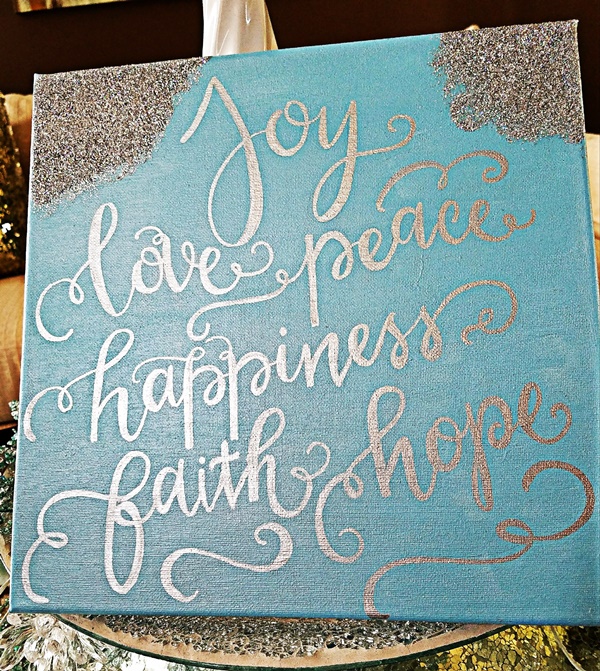 Joy
love peace
happiness
faith hope